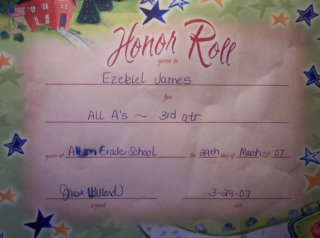 Honor Roll
given to
Ezekiel James
for
All A's ~ 3rd qtr
given at Grade School the 29th day of March 20 07
3-29-07
signed date